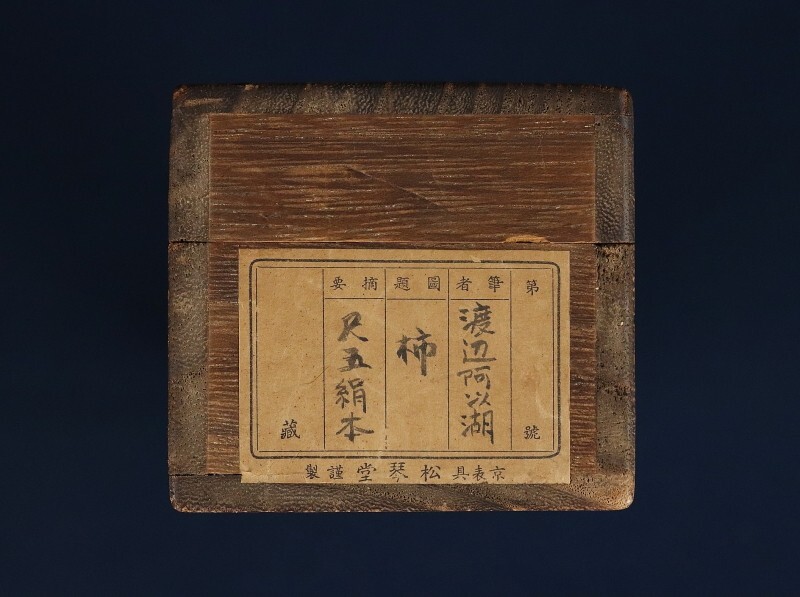 第 號
筆者
渡辺阿以湖
圖題
柿
摘要
尺五絹本
藏
京表具松琴堂謹製